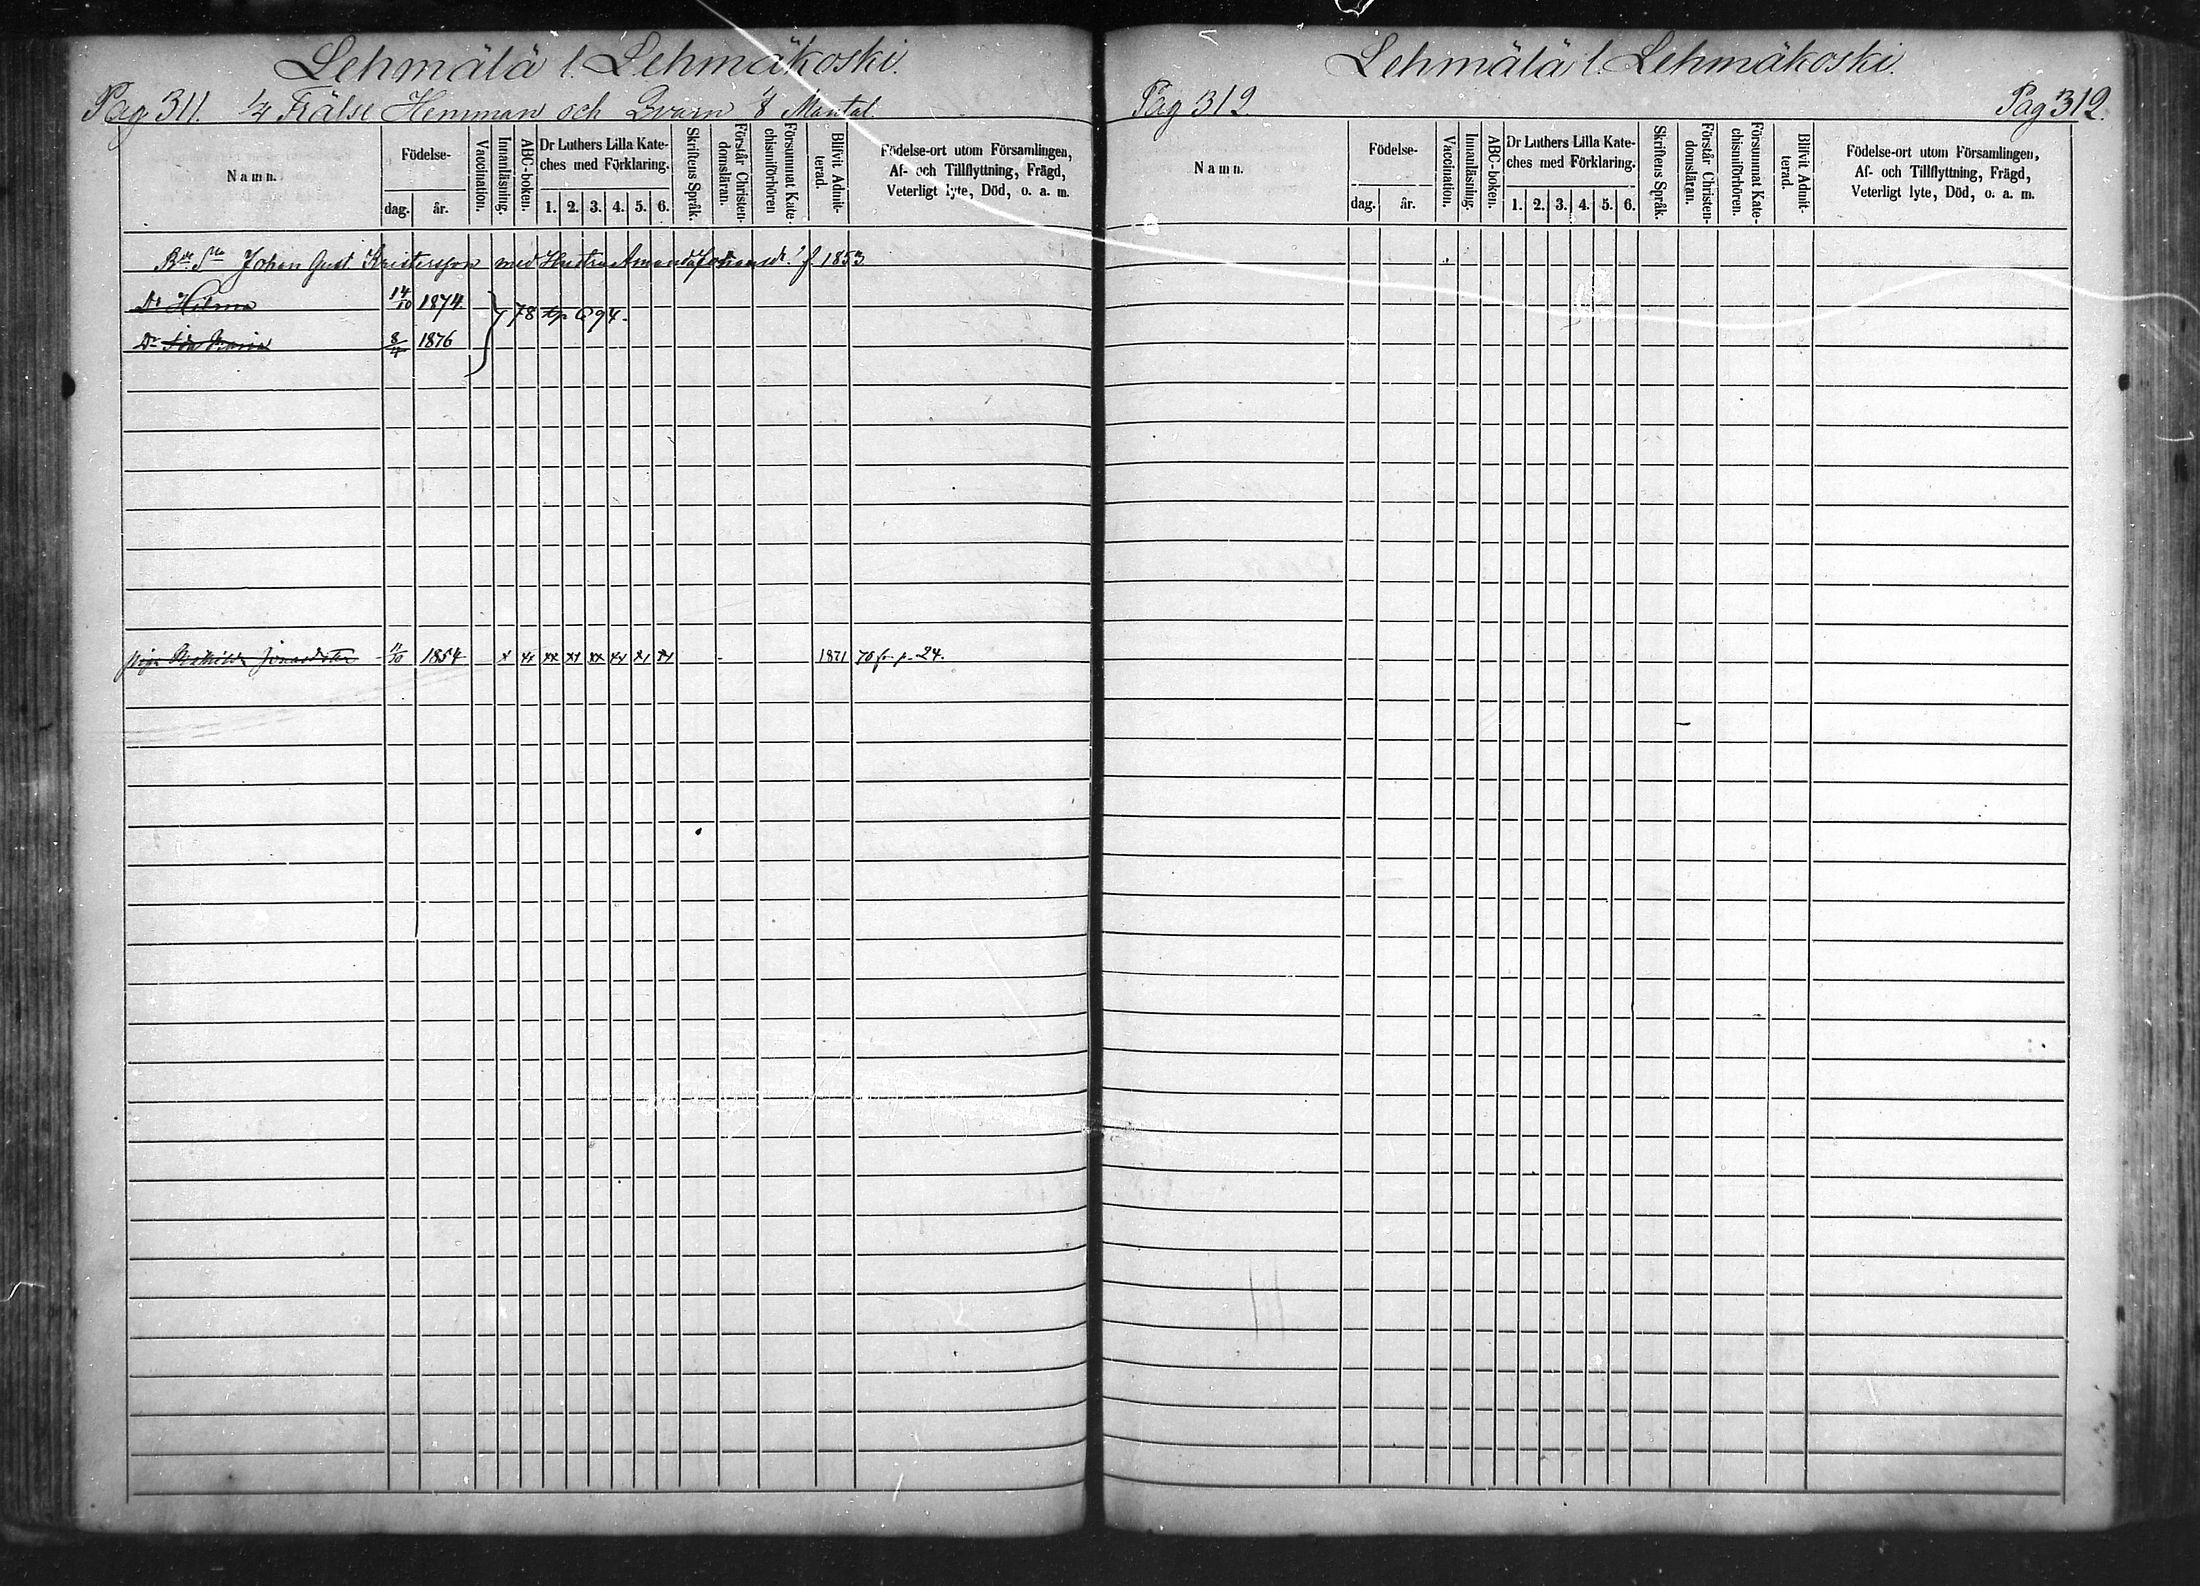 Lehmälä l. Lehmäkoski.
Pag 311. 1/4 Frälse Hemman och Qvarn 1/8 Mantal.
Namn.
Födelse-
dag. år.
Vaccination.
Innanläsning.
ABC-boken.
Dr Luthers Lilla Kate-
ches med Förklaring.
1. 2. 3. 4. 5. 6.
Skriftens Språk.
Förstår Christen-
domsläran.
Försummat Kate-
chismiförhören
Blifvit Admit-
terad.
Födelse-ort utom Församlingen,
Af- och Tillflyttning, Frägd,
Veterligt lyte, Död, o. a. m.
Johan Gust Kristersson med Hustru Amanda Johansdr. f. 1853
Dr Hilma 14/10 1874
78 694.
Dr Ida Maria 8/4 1876
Piga Mathilda 11/10 1854 x xx xx xx xx xx xx xx 1871 70 fr p. 24.
Lehmälä l. Lehmäkoski.
Pag 312. Pag 312.
Namn.
Födelse-
dag. år.
Vaccination.
Innanläsning.
ABC-boken.
Dr Luthers Lilla Kate-
ches med Förklaring.
1. 2. 3. 4. 5. 6.
Skriftens Språk.
Förstår Christen-
domsläran.
Försummat Kate-
chismiförhören.
Blifvit Admit-
terad.
Födelse-ort utom Församlingen,
Af- och Tillflyttning, Frägd,
Veterligt lyte, Död, o. a. m.